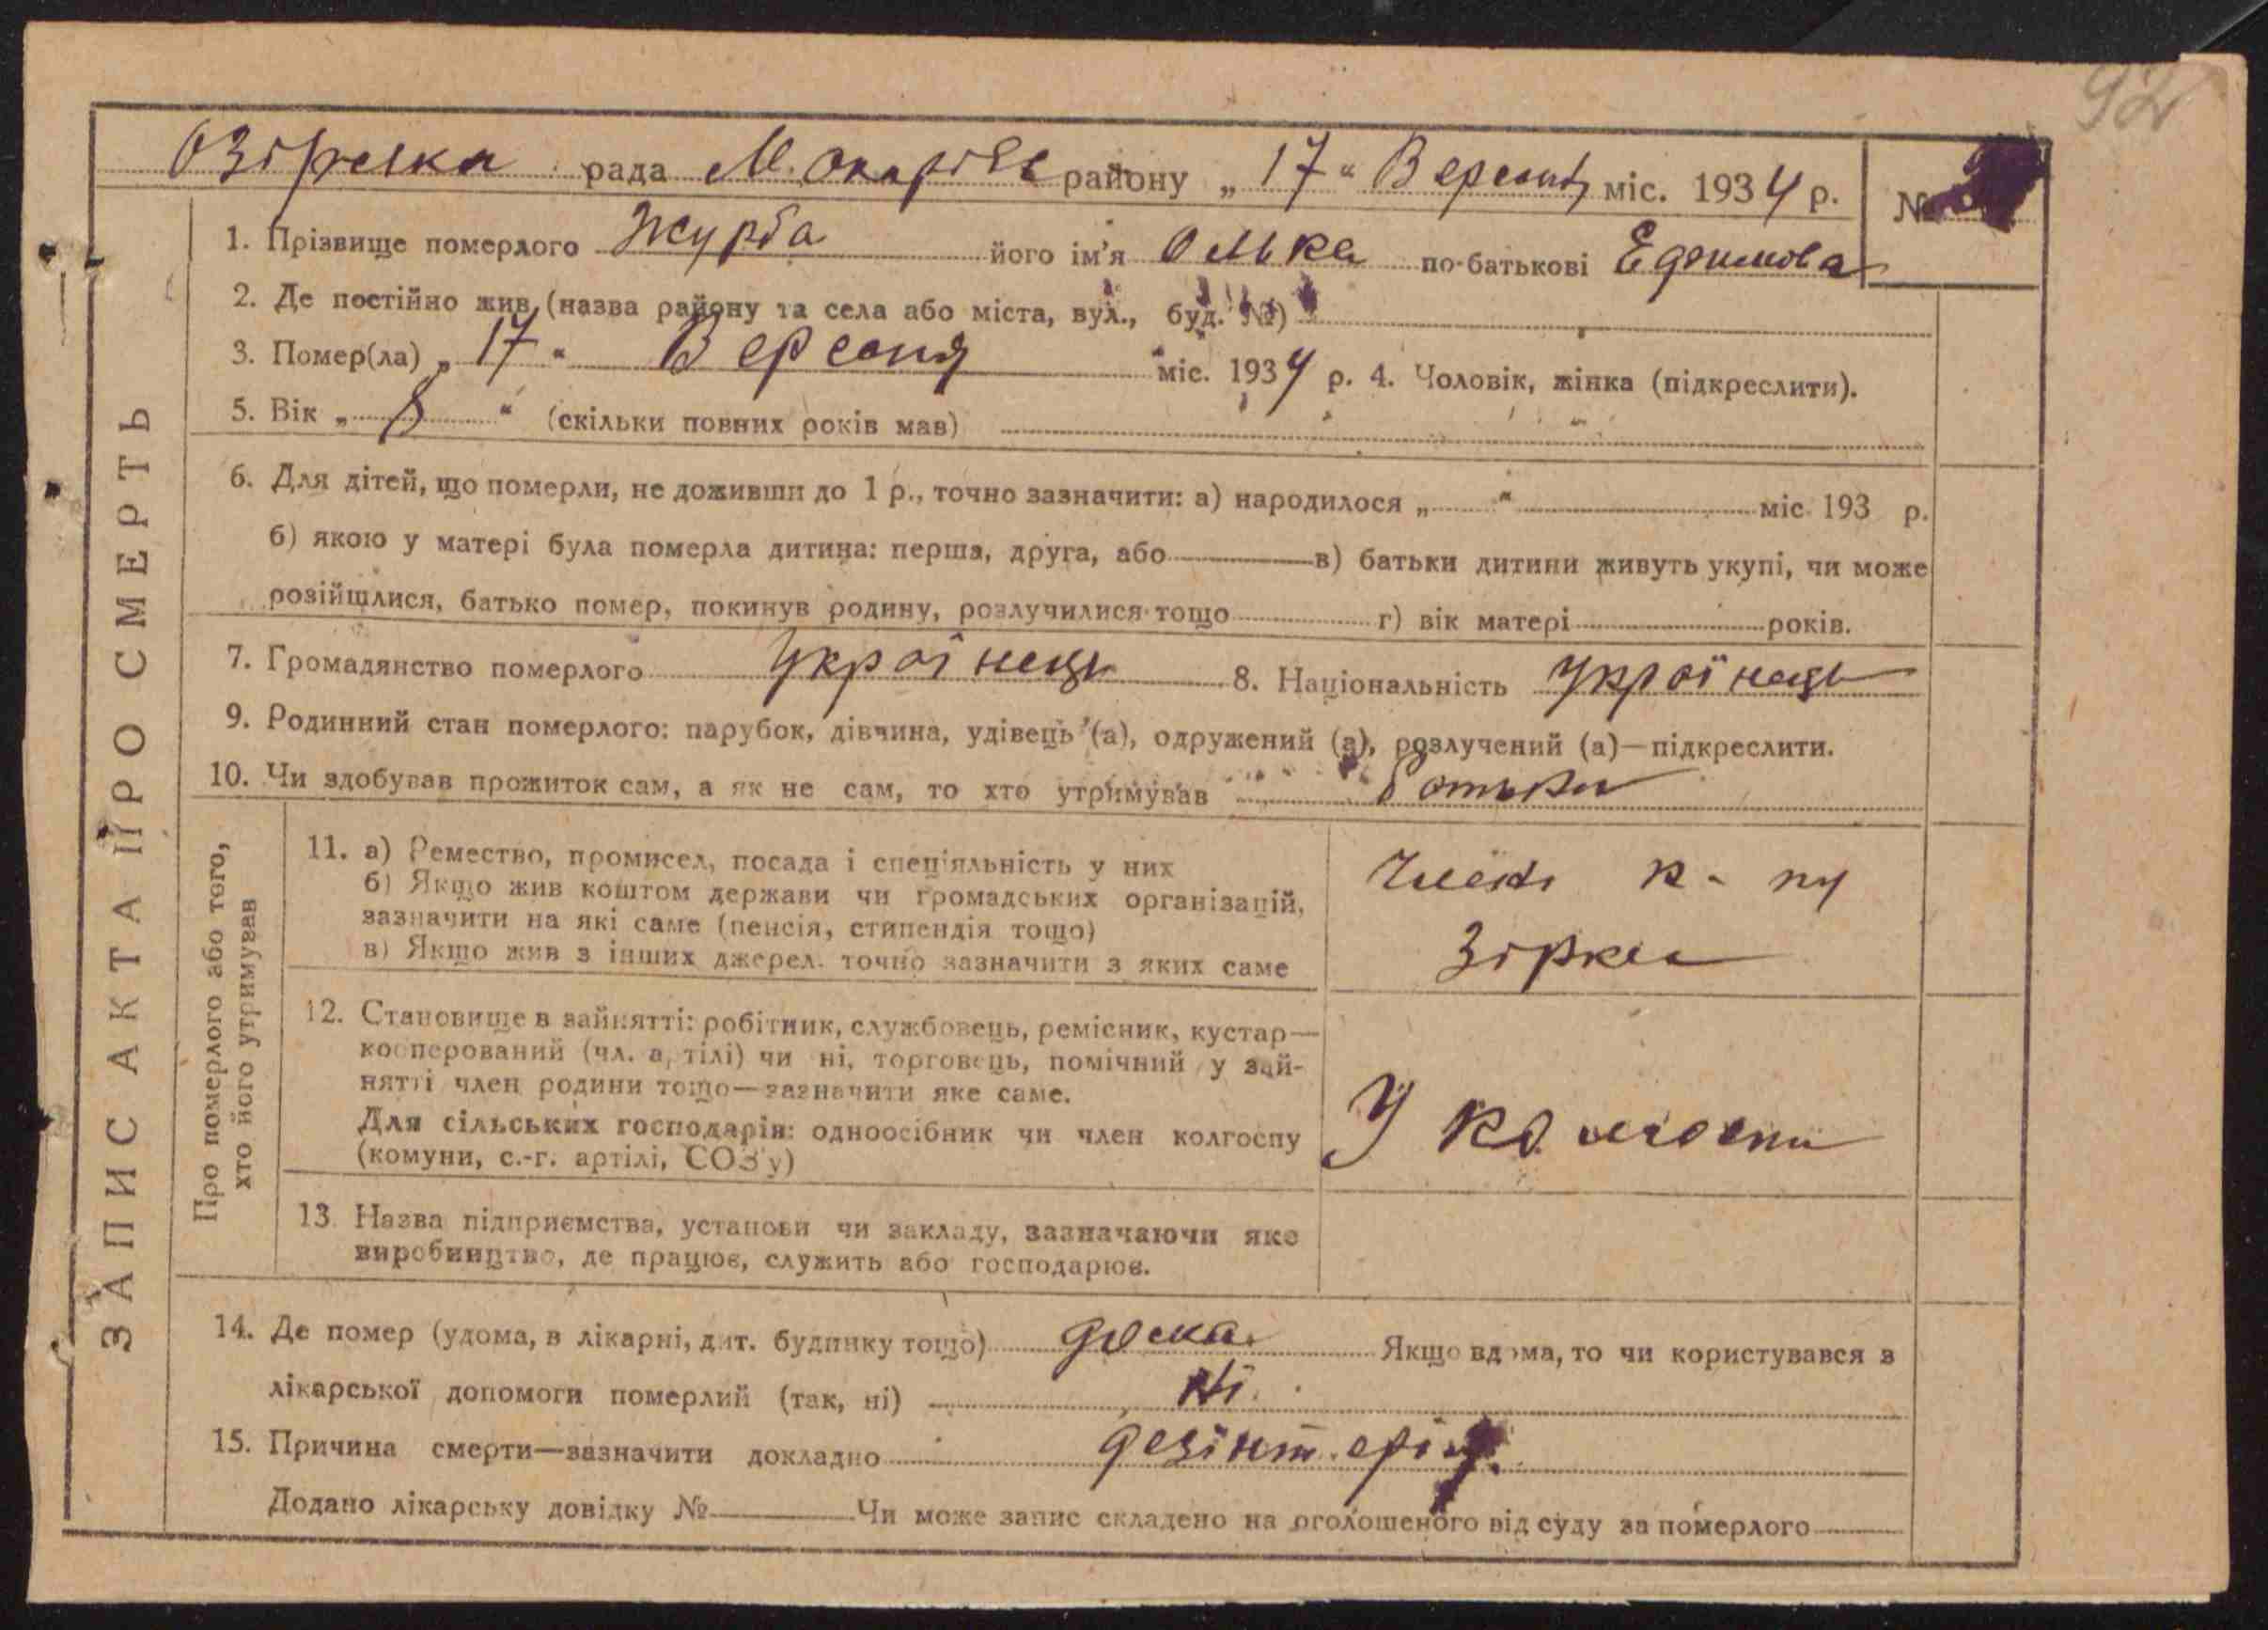 92
Озірська рада Макарівс району „17“ Вересня міс. 1934 р. №
1. Прізвище померлого Журба його ім'я Олька по-батькові
2. Де постійно жив (назва району та села або міста, вул., буд. №)
3. Помер(ла) „17“ Вересня міс. 1934 р. 4. Чоловік, жінка (підкреслити).
5. Вік „8“ (скільки повних років мав)
6. Для дітей, що померли, не доживши до 1 р., точно зазначити: а) народилося „ “ міс. 193 р.
б) якою у матері була померла дитина: перша, друга, або в) батьки дитини живуть укупі, чи може
розійшлися, батько помер, покинув родину, розлучилися тощо г) вік матері років.
7. Громадянство померлого Українець 8. Національність Українець
9. Родинний стан померлого: парубок, дівчина, удівець (а), одружений (а), розлучений (а)—підкреслити.
10. Чи здобував прожиток сам, а як не сам, то хто утримував батьки
ЗАПИС АКТА ПРО СМЕРТЬ
Про померлого або того,
хто його утримував
11. а) Ремество, промисел, посада і спеціяльність у них
б) Якщо жив коштом держави чи громадських організацій,
зазначити на які саме (пенсія, стипендія тощо)
в) Якщо жив з інших джерел. точно зазначити з яких саме
к-пу
Зірка
12. Становище в зайнятті: робітник, службовець, ремісник, кустар—
кооперований (чл. артілі) чи ні, торговець, помічний у зай-
нятті член родини тощо—зазначити яке саме.
Для сільських господарів: одноосібник чи член колгоспу
(комуни, с.-г. артілі, СОЗ'у)
У колгоспі
13. Назва підприємства, установи чи закладу, зазначаючи яке
виробництво, де працює, служить або господарює.
14. Де помер (удома, в лікарні, дит. будинку тощо) дома. Якщо вдома, то чи користувався з
лікарської допомоги померлий (так, ні) Ні.
15. Причина смерти—зазначити докладно дезінтерія
Додано лікарську довідку № Чи може запис складено на оголошеного від суду за померлого